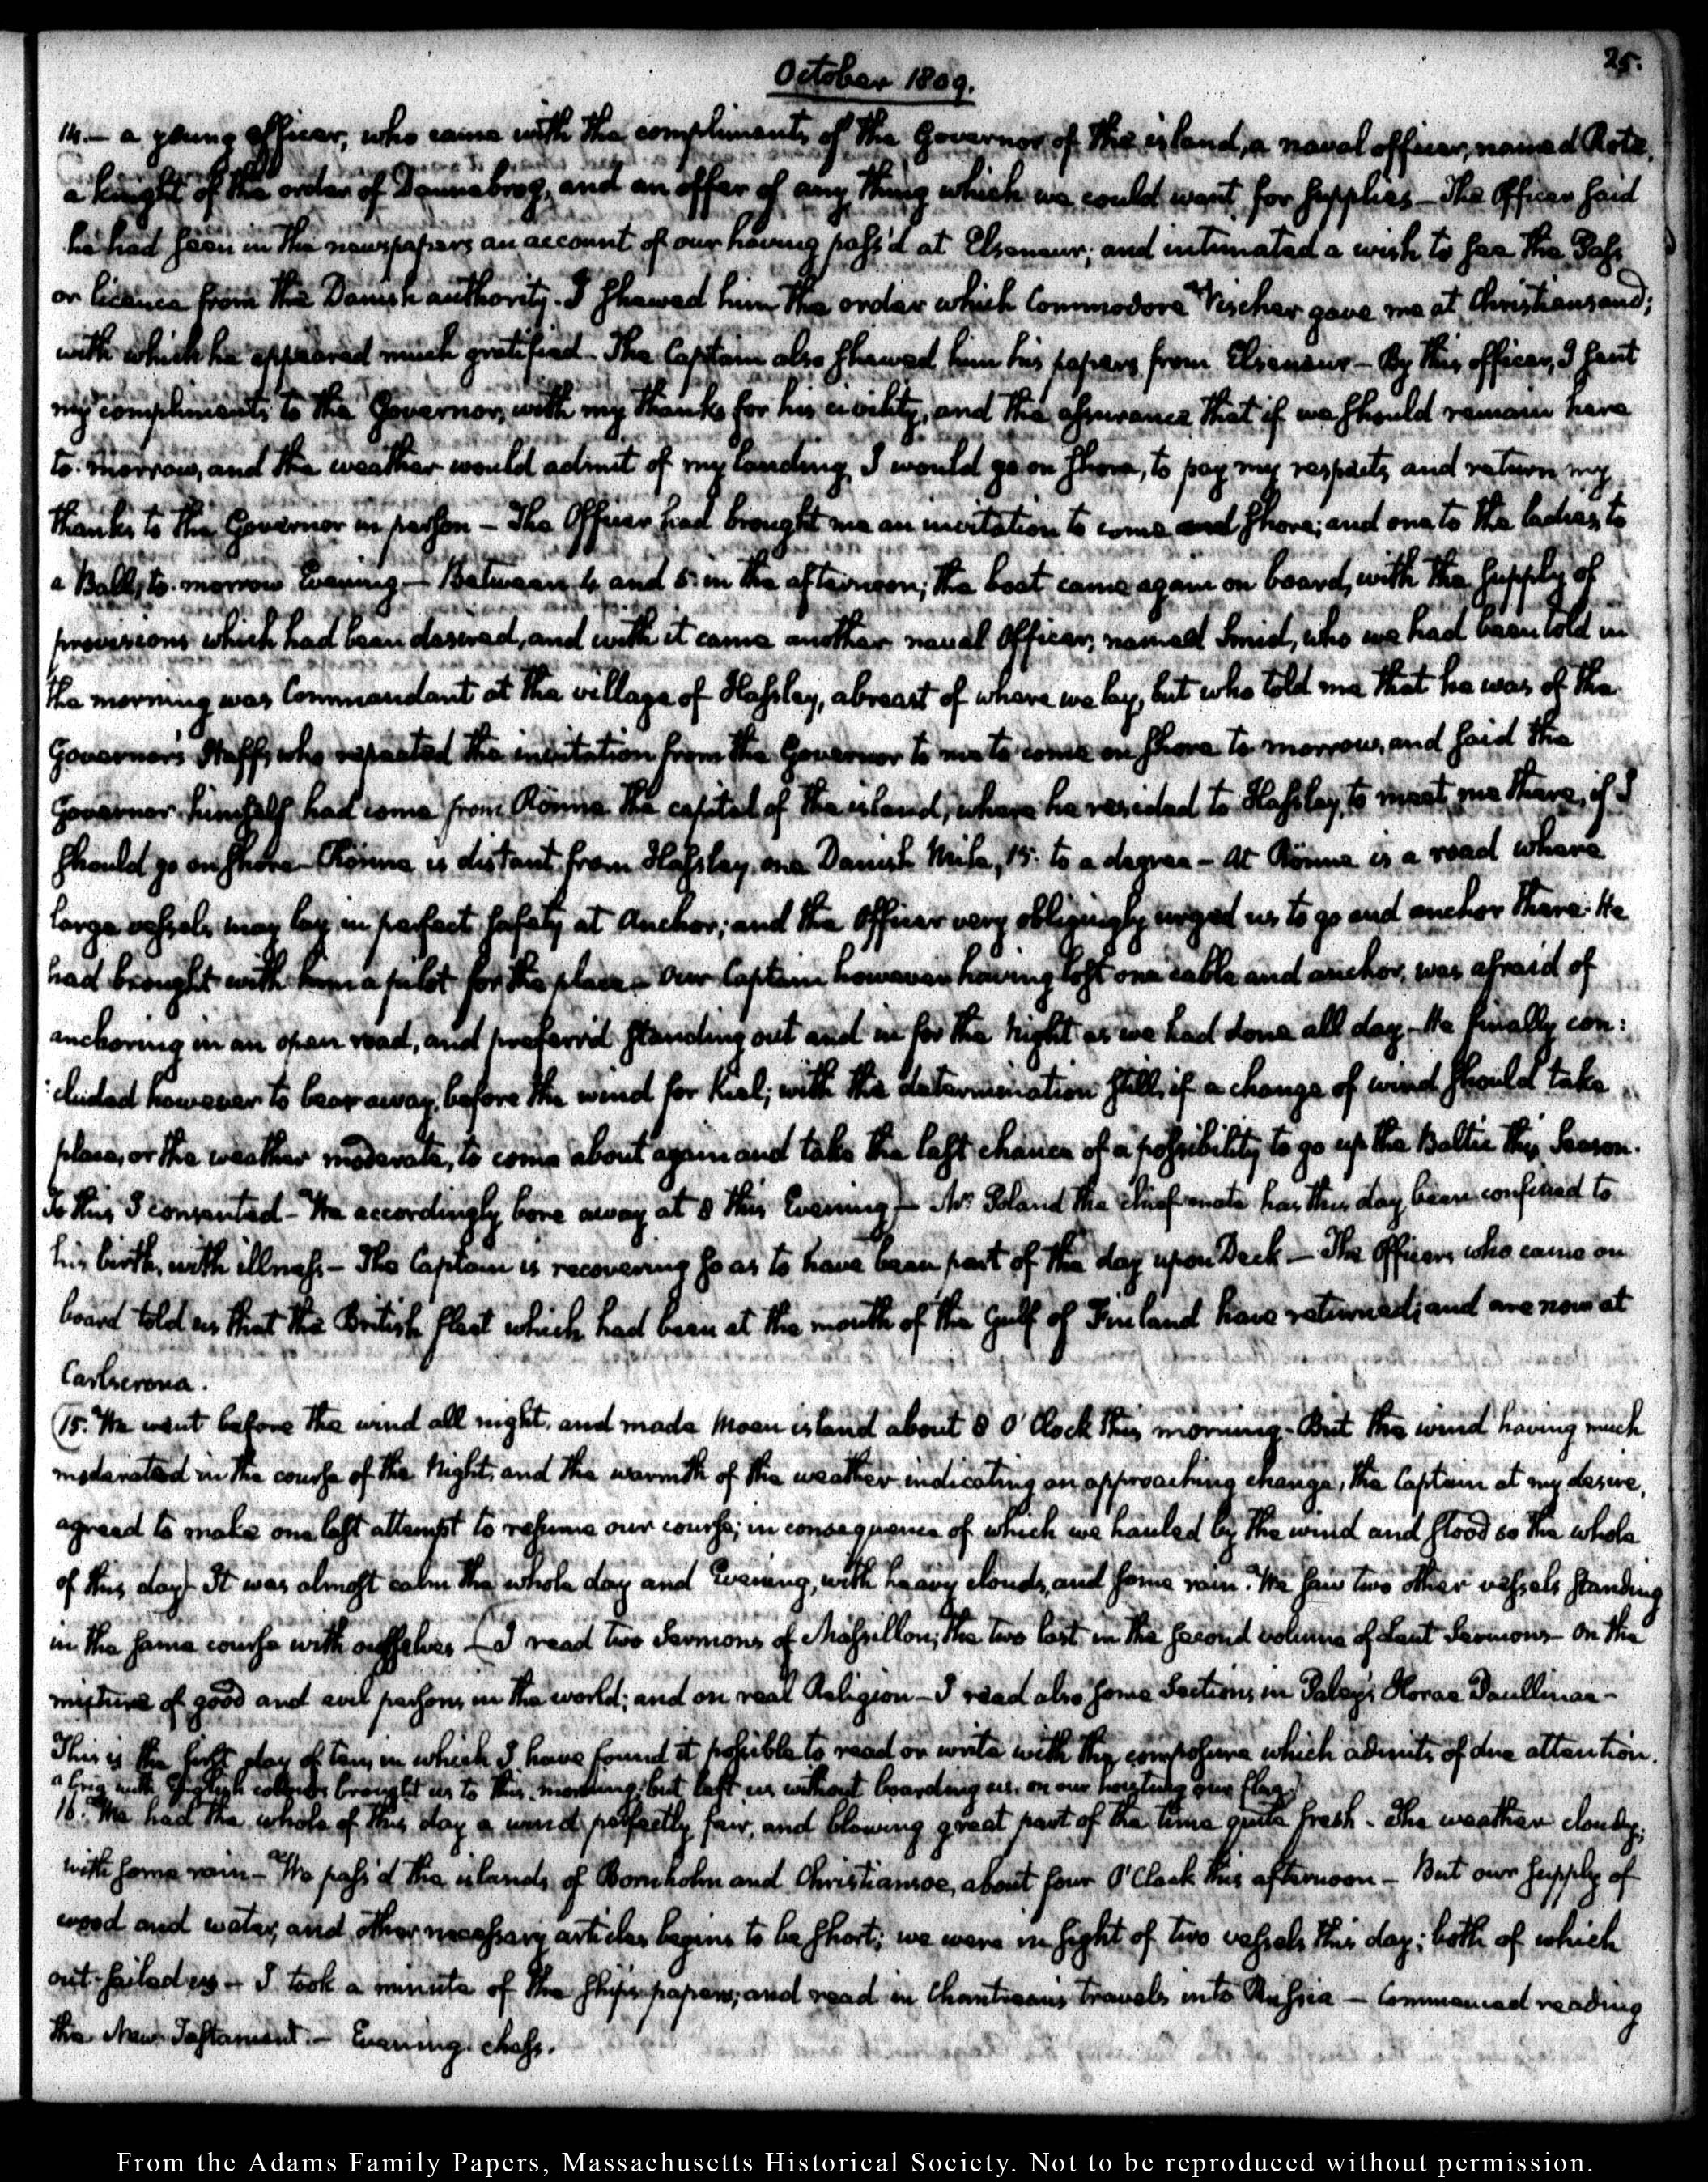 October 1809.
25.
14.— a young officer, who came with the compliments of the Governor of the island, a naval officer, named Rote,
a knight of the order of Dannebrog, and an offer of any thing which we could want, for supplies — The Officer said
he had seen in the newspapers an account of our having pass'd at Elseneur; and intimated a wish to see the Pass
or licence from the Danish authority. I shewed him the order which Commodore Fischer gave me at Christiansand;
with which he appeared much gratified — The Captain also shewed him his papers from Elseneur — By this officer, I sent
my compliments to the Governor, with my thanks for his civility, and the assurance that if we should remain here
to-morrow, and the weather would admit of my landing, I would go on shore, to pay my respects and return my
thanks to the Governor in person — The Officer had brought me an invitation to come and shore; and one to the ladies, to
a Ball, to-morrow Evening — Between 4 and 5 in the afternoon; the boat came again on board, with the supply of
provisions which had been desired, and with it came another naval Officer, named Smid, who we had been told in
the morning was Commandant at the village of Hassley, abreast of where we lay, but who told me that he was of the
Governor's Staff, who repeated the invitation from the Governor to me to come on shore to-morrow, and said the
Governor himself had come from Rönne the capital of the island, where he resided to Hassley, to meet me there, if I
should go on shore — Rönne is distant from Hassley one Danish Mile, 15. to a degree — At Rönne is a road where
large vessels may lay in perfect safety at Anchor; and the Officer very obligingly urged us to go and anchor there. He
had brought with him a pilot for the place — Our Captain however having lost one cable and anchor, was afraid of
anchoring in an open road, and preferr'd standing out and in for the Night as we had done all day — He finally con:
:cluded however to bear away, before the wind for Kiel; with the determination still, if a change of wind should take
place, or the weather moderate, to come about again and take the last chance of a possibility to go up the Baltic this Season.
To this I consented — We accordingly bore away at 8 this Evening — Mr. Poland the chief mate has this day been confined to
his birth, with illness — The Captain is recovering so as to have been part of the day upon Deck — The Officers who came on
board told us that the British fleet which had been at the mouth of the Gulf of Finland have returned; and are now at
Carlscrona.
15. We went before the wind all night, and made Moen island about 8 O'Clock this morning — But the wind having much
moderated in the course of the Night, and the warmth of the weather indicating an approaching change, the Captain at my desire,
agreed to make one last attempt to resume our course; in consequence of which we hauled by the wind and stood so the whole
of this day) It was almost calm the whole day and Evening, with heavy clouds, and some rain. We saw two other vessels standing
in the same course with ourselves — (I read two Sermons of Massillon; the two last in the second volume of Lent Sermons — On the
mixture of good and evil persons in the world; and on real Religion — I read also some Sections in Paley's Horae Paullinae —
This is the first day of ten, in which I have found it possible to read or write with the composure which admits of due attention.
a brig with English colours brought us to this morning; but left us without boarding us, on our hoisting our flag.)
16. We had the whole of this day a wind perfectly fair, and blowing great part of the time quite fresh — The weather cloudy;
with some rain — We pass'd the islands of Bornholm and Christiansoe, about four O'Clock this afternoon — But our supply of
wood and water, and other necessary articles begins to be short; we were in sight of two vessels this day; both of which
out-sailed us — I took a minute of the ship's papers; and read in Chantreau's travels into Russia — Commenced reading
the New-Testament. — Evening. chess.
From the Adams Family Papers, Massachusetts Historical Society. Not to be reproduced without permission.